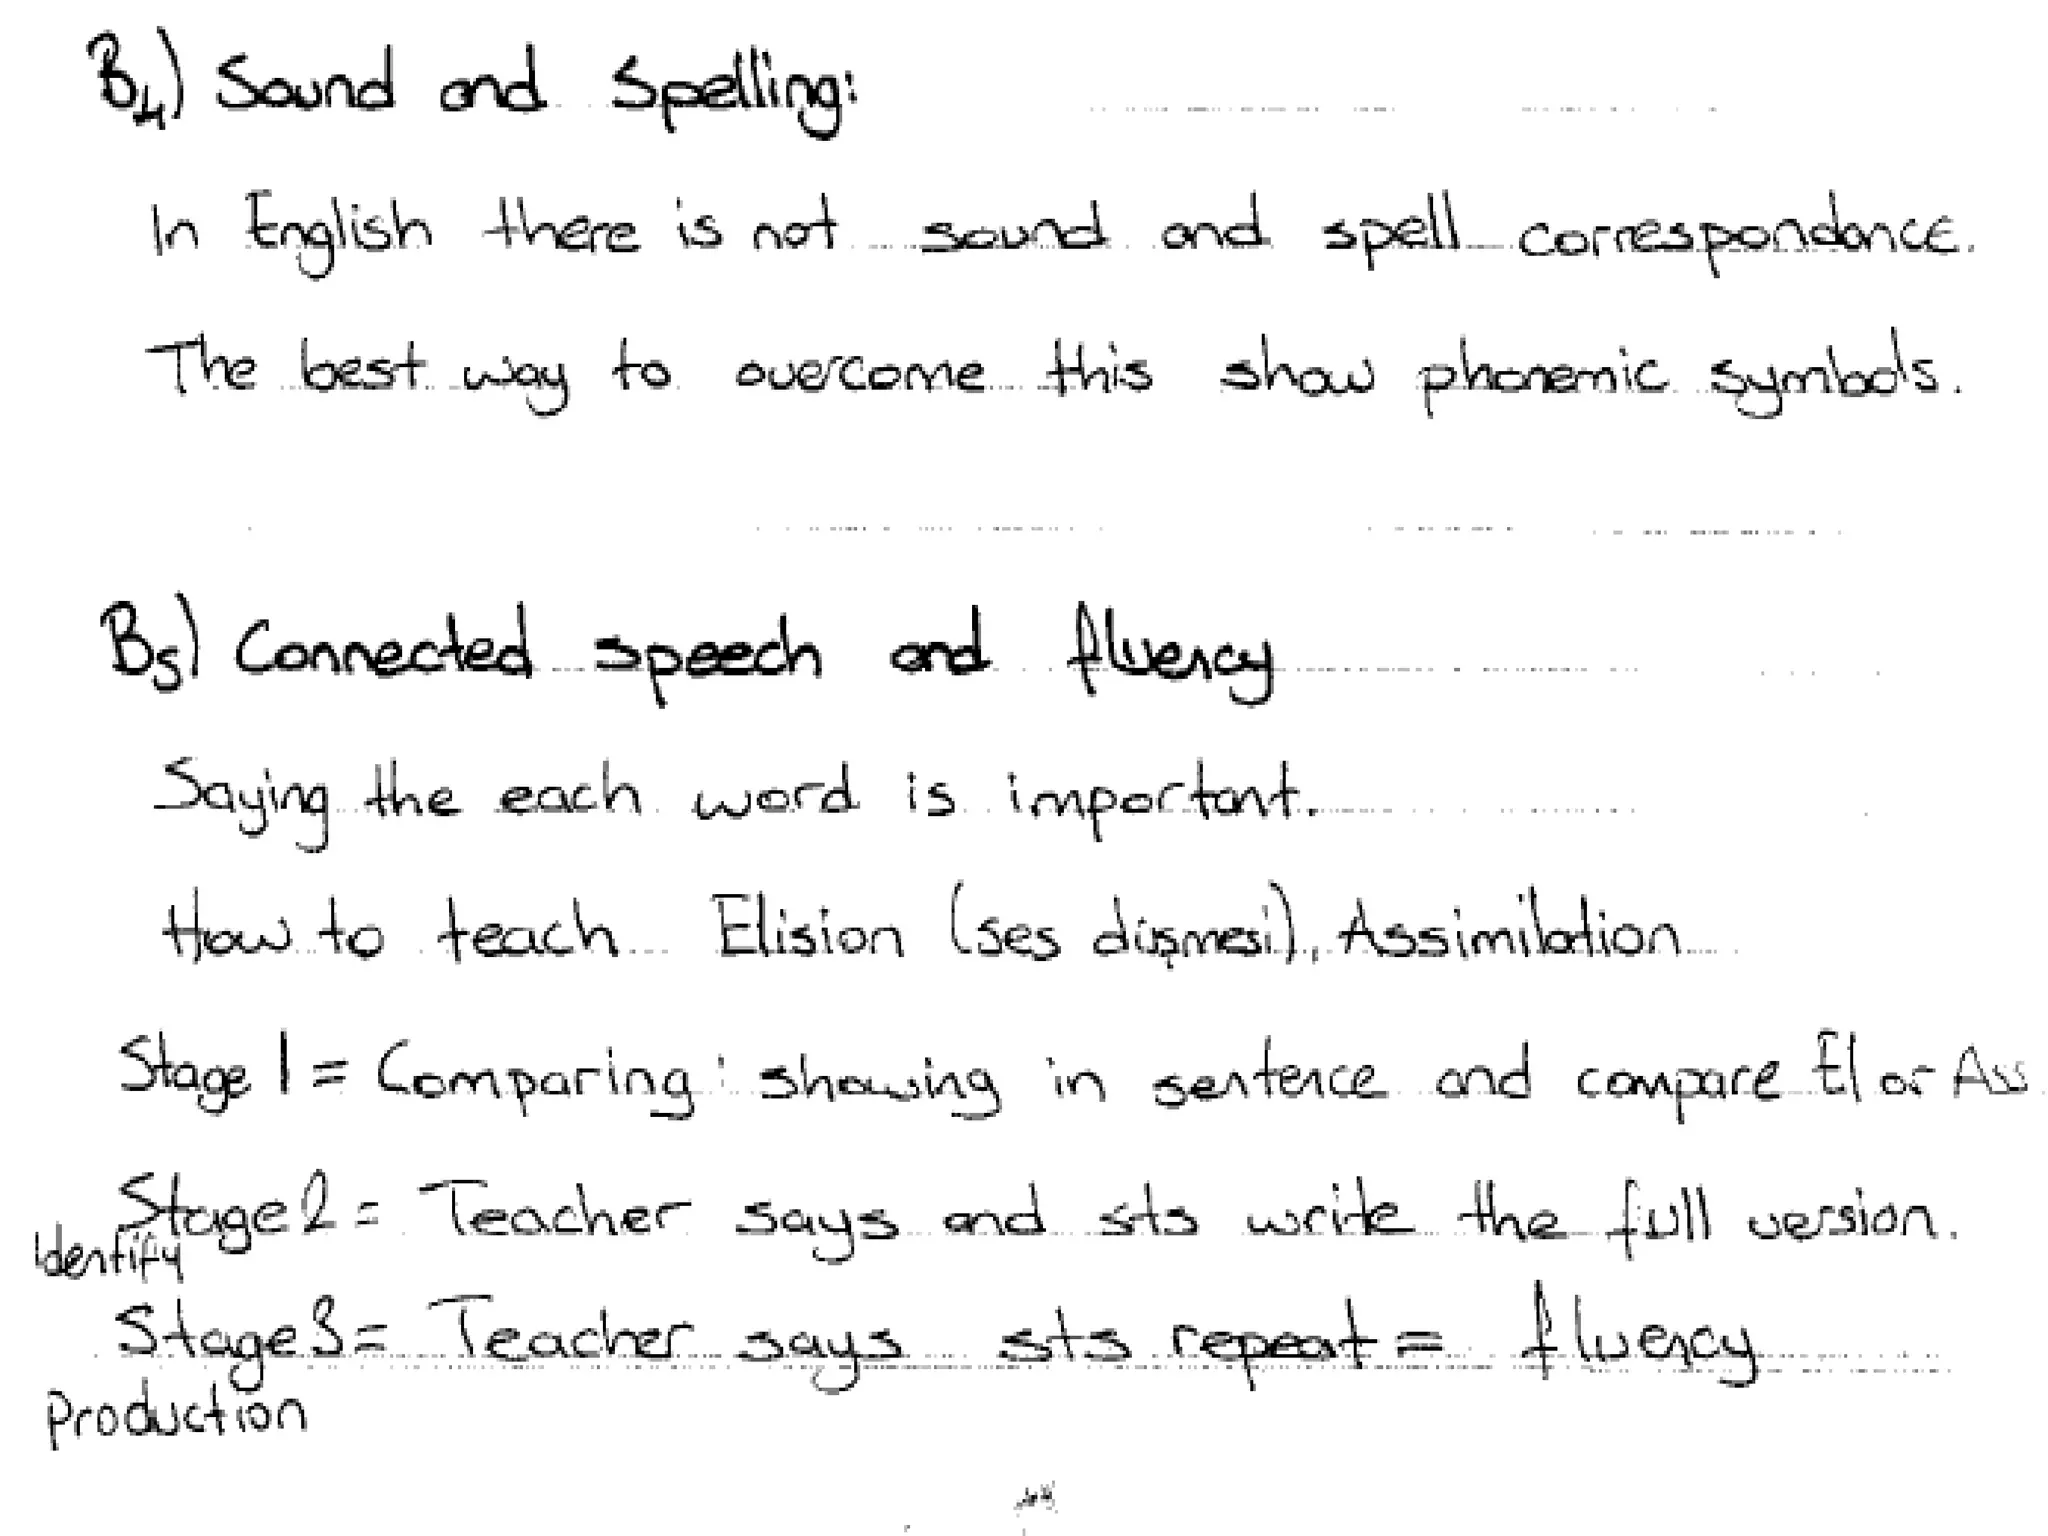 B4) Sound and Spelling:
In English there is not sound and spell correspondance.
The best way to overcome this show phonemic symbols.
B5) Connected speech and fluency
Saying the each word is important.
How to teach Elision (ses düşmesi), Assimilation
Stage 1 = Comparing: showing in sentence and compare El or Ass
Stage 2 = Teacher says and sts write the full version.
Identify
Stage 3 = Teacher says sts repeat = fluency
Production